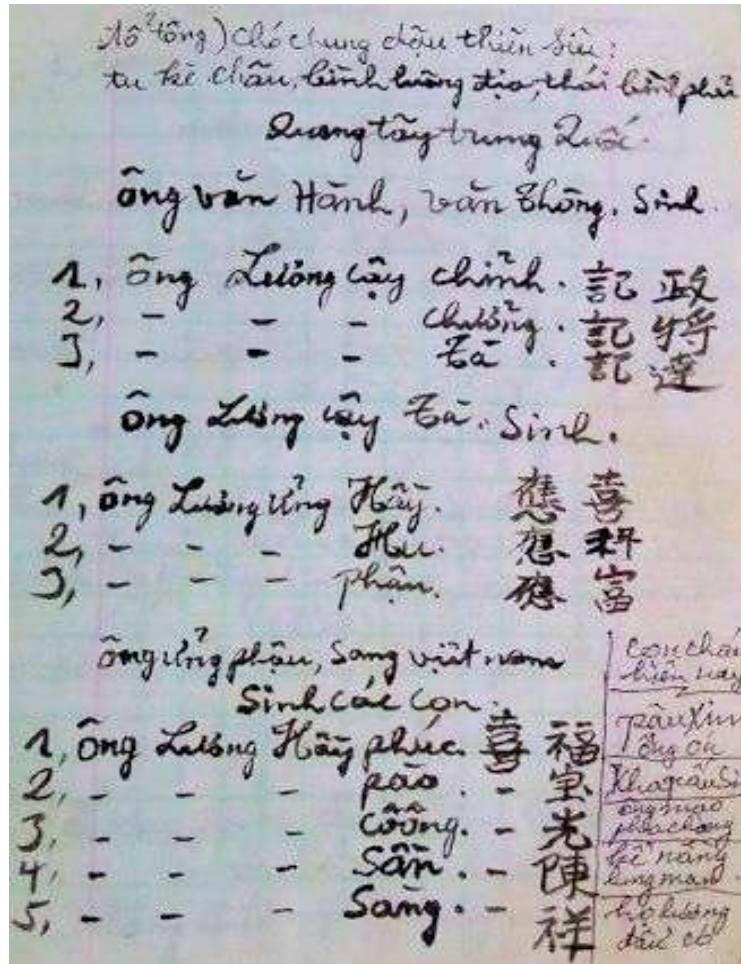 tổ tông) chó chung dậu thiên siu:
tu kê châu, bình lương đạo, thái bình phủ
Quang tây trung Quốc.
ông văn Hành, văn thông. Sinh.
1, ông Lương cậy chinh. 記 政
2, - - - chưởng. 記 将
3, - - - Tà. 記 達
ông Lương cậy Tà. Sinh.
1, ông Lương ứng Hãy. 應 喜
2, - - - Hu. 應 科
3, - - - phận. 應 富
ông ứng phận, Sang việt nam
Sinh các con.
1, ông Lương Hãy phúc. 喜 福
2, - - - páo. - 宝
3, - - - cồông. - 光
4, - - - Sần. - 陳
5, - - - Sang. - 祥
con cháu
hiện nay
ông mao
họ lương